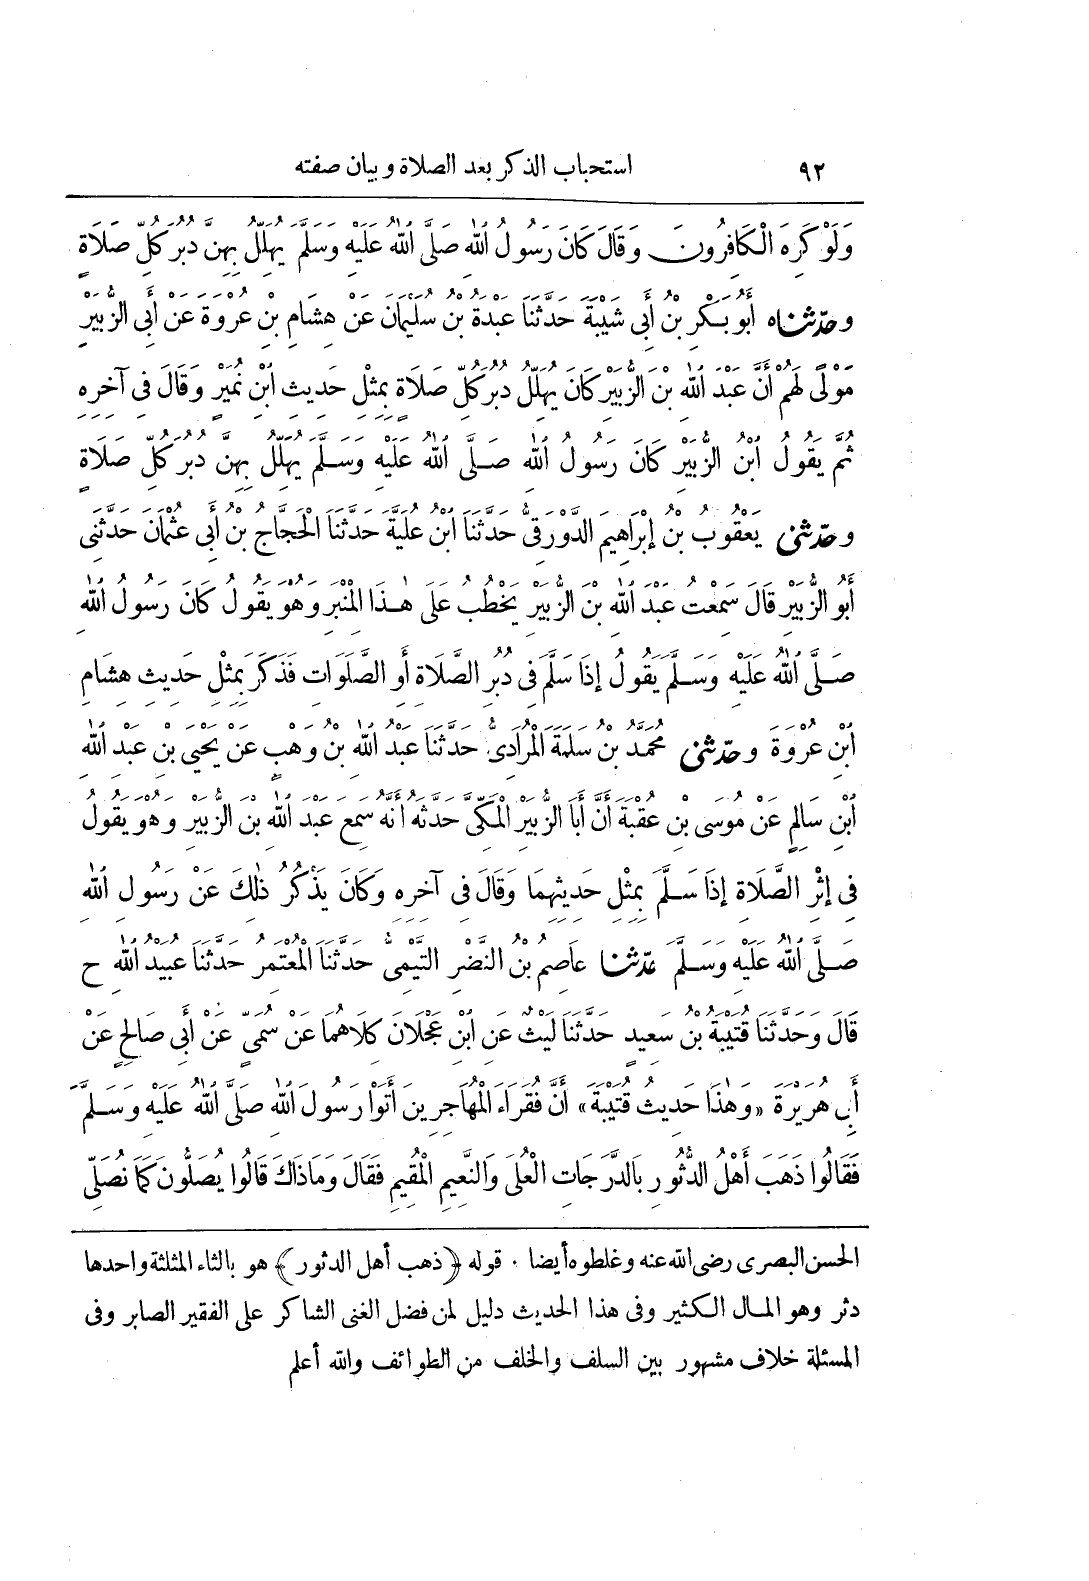 ٩٢ استحباب الذكر بعد الصلاة وبيان صفته
وَلَوْ كَرِهَ الْكَافِرُونَ وَقَالَ كَانَ رَسُولُ اللهِ صَلَّى اللهُ عَلَيْهِ وَسَلَّمَ يُهَلِّلُ بِهِنَّ دُبُرَ كُلِّ صَلَاةٍ
وحدثناه أَبُو بَكْرِ بْنُ أَبِي شَيْبَةَ حَدَّثَنَا عَبْدَةُ بْنُ سُلَيْمَانَ عَنْ هِشَامِ بْنِ عُرْوَةَ عَنْ أَبِي الزُّبَيْرِ
مَوْلًى لَهُمْ أَنَّ عَبْدَ اللهِ بْنَ الزُّبَيْرِ كَانَ يُهَلِّلُ دُبُرَ كُلِّ صَلَاةٍ بِمِثْلِ حَدِيثِ ابْنِ نُمَيْرٍ وَقَالَ فِي آخِرِهِ
ثُمَّ يَقُولُ ابْنُ الزُّبَيْرِ كَانَ رَسُولُ اللهِ صَلَّى اللهُ عَلَيْهِ وَسَلَّمَ يُهَلِّلُ بِهِنَّ دُبُرَ كُلِّ صَلَاةٍ
وحدثنى يَعْقُوبُ بْنُ إِبْرَاهِيمَ الدَّوْرَقِيُّ حَدَّثَنَا ابْنُ عُلَيَّةَ حَدَّثَنَا الْحَجَّاجُ بْنُ أَبِي عُثْمَانَ حَدَّثَنِي
أَبُو الزُّبَيْرِ قَالَ سَمِعْتُ عَبْدَ اللهِ بْنَ الزُّبَيْرِ يَخْطُبُ عَلَى هَذَا الْمِنْبَرِ وَهُوَ يَقُولُ كَانَ رَسُولُ اللهِ
صَلَّى اللهُ عَلَيْهِ وَسَلَّمَ يَقُولُ إِذَا سَلَّمَ فِي دُبُرِ الصَّلَاةِ أَوِ الصَّلَوَاتِ فَذَكَرَ بِمِثْلِ حَدِيثِ هِشَامِ
ابْنِ عُرْوَةَ وحدثنى مُحَمَّدُ بْنُ سَلَمَةَ الْمُرَادِيُّ حَدَّثَنَا عَبْدُ اللهِ بْنُ وَهْبٍ عَنْ يَحْيَى بْنِ عَبْدِ اللهِ
ابْنِ سَالِمٍ عَنْ مُوسَى بْنِ عُقْبَةَ أَنَّ أَبَا الزُّبَيْرِ الْمَكِّيَّ حَدَّثَهُ أَنَّهُ سَمِعَ عَبْدَ اللهِ بْنَ الزُّبَيْرِ وَهُوَ يَقُولُ
فِي إِثْرِ الصَّلَاةِ إِذَا سَلَّمَ بِمِثْلِ حَدِيثِهِمَا وَقَالَ فِي آخِرِهِ وَكَانَ يَذْكُرُ ذٰلِكَ عَنْ رَسُولِ اللهِ
صَلَّى اللهُ عَلَيْهِ وَسَلَّمَ حدثنا عَاصِمُ بْنُ النَّضْرِ التَّيْمِيُّ حَدَّثَنَا الْمُعْتَمِرُ حَدَّثَنَا عُبَيْدُ اللهِ ح
قَالَ وَحَدَّثَنَا قُتَيْبَةُ بْنُ سَعِيدٍ حَدَّثَنَا لَيْثٌ عَنِ ابْنِ عَجْلَانَ كِلَاهُمَا عَنْ سُمَيٍّ عَنْ أَبِي صَالِحٍ عَنْ
أَبِي هُرَيْرَةَ «وَهٰذَا حَدِيثُ قُتَيْبَةَ» أَنَّ فُقَرَاءَ الْمُهَاجِرِينَ أَتَوْا رَسُولَ اللهِ صَلَّى اللهُ عَلَيْهِ وَسَلَّمَ
فَقَالُوا ذَهَبَ أَهْلُ الدُّثُورِ بِالدَّرَجَاتِ الْعُلَى وَالنَّعِيمِ الْمُقِيمِ فَقَالَ وَمَا ذَاكَ قَالُوا يُصَلُّونَ كَمَا نُصَلِّي
الحسن البصرى رضى الله عنه وغلطوه أيضا . قوله ﴿ذهب أهل الدثور﴾ هو بالثاء المثلثة واحدها
دثر وهو المال الكثير وفى هذا الحديث دليل لمن فضل الغنى الشاكر على الفقير الصابر وفى
المسئلة خلاف مشهور بين السلف والخلف من الطوائف والله أعلم